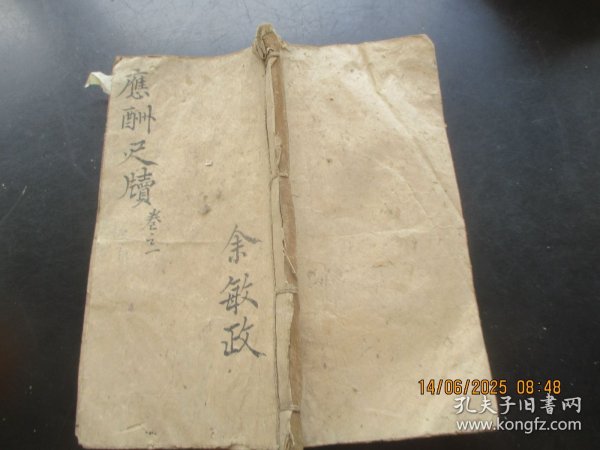 應酬尺牘
卷之一
余敏政
14/06/2025 08:48
孔夫子旧書网
www.kongfz.com